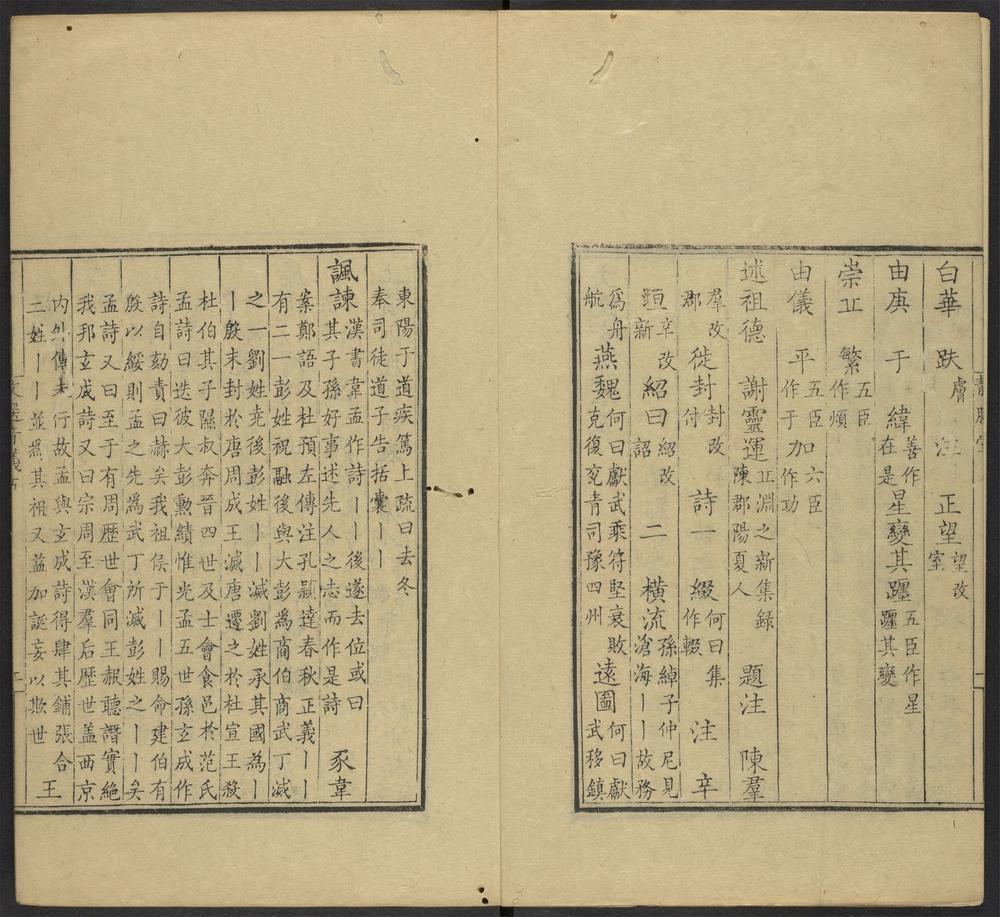 白華 趺膚 注 正望望改室
由庚 于 緯善作在是星變其躔五臣作星躔其變
崇丘 繁五臣作煩
由儀 平五臣作于加六臣作功
述祖德 謝靈運丘淵之新集録陳郡陽夏人 題注 陳羣
羣改郡 徙封封改付 詩一 綴何曰集作輟 注 辛
垣辛改新 紹曰紹改詔 二 橫流孫綽子仲尼見滄海丨丨故務
為舟航 燕魏何曰獻武乘符堅衰敗克復兗青司豫四州 遠圖何曰獻武移鎮
東陽于道疾篤上疏曰去冬
奉司徒道子告括囊丨丨
諷諫漢書韋孟作詩丨丨後遂去位或曰
其子孫好事述先人之志而作是詩 豕韋
案鄭語及杜預左傳注孔穎達春秋正義丨丨
有二一彭姓祝融後與大彭為商伯商武丁滅
之一劉姓堯後彭姓丨丨滅劉姓承其國為丨
丨殷末封於唐周成王滅唐遷之於杜宣王殺
杜伯其子隰叔奔晉四世及士會食邑於范氏
孟詩曰迭彼大彭勲績惟光孟五世孫玄成作
詩自劾責曰赫矣我祖侯于丨丨賜命建伯有
殷以綏則孟之先為武丁所滅彭姓之丨丨矣
孟詩又曰至于有周歴世會同王赧聽譖實絕
我邦玄成詩又曰宗周至漢羣后歴世蓋西京
內外傳未行故孟與玄成詩得肆其鋪張合
二姓丨丨並為其祖又益加誕妄以欺世 王